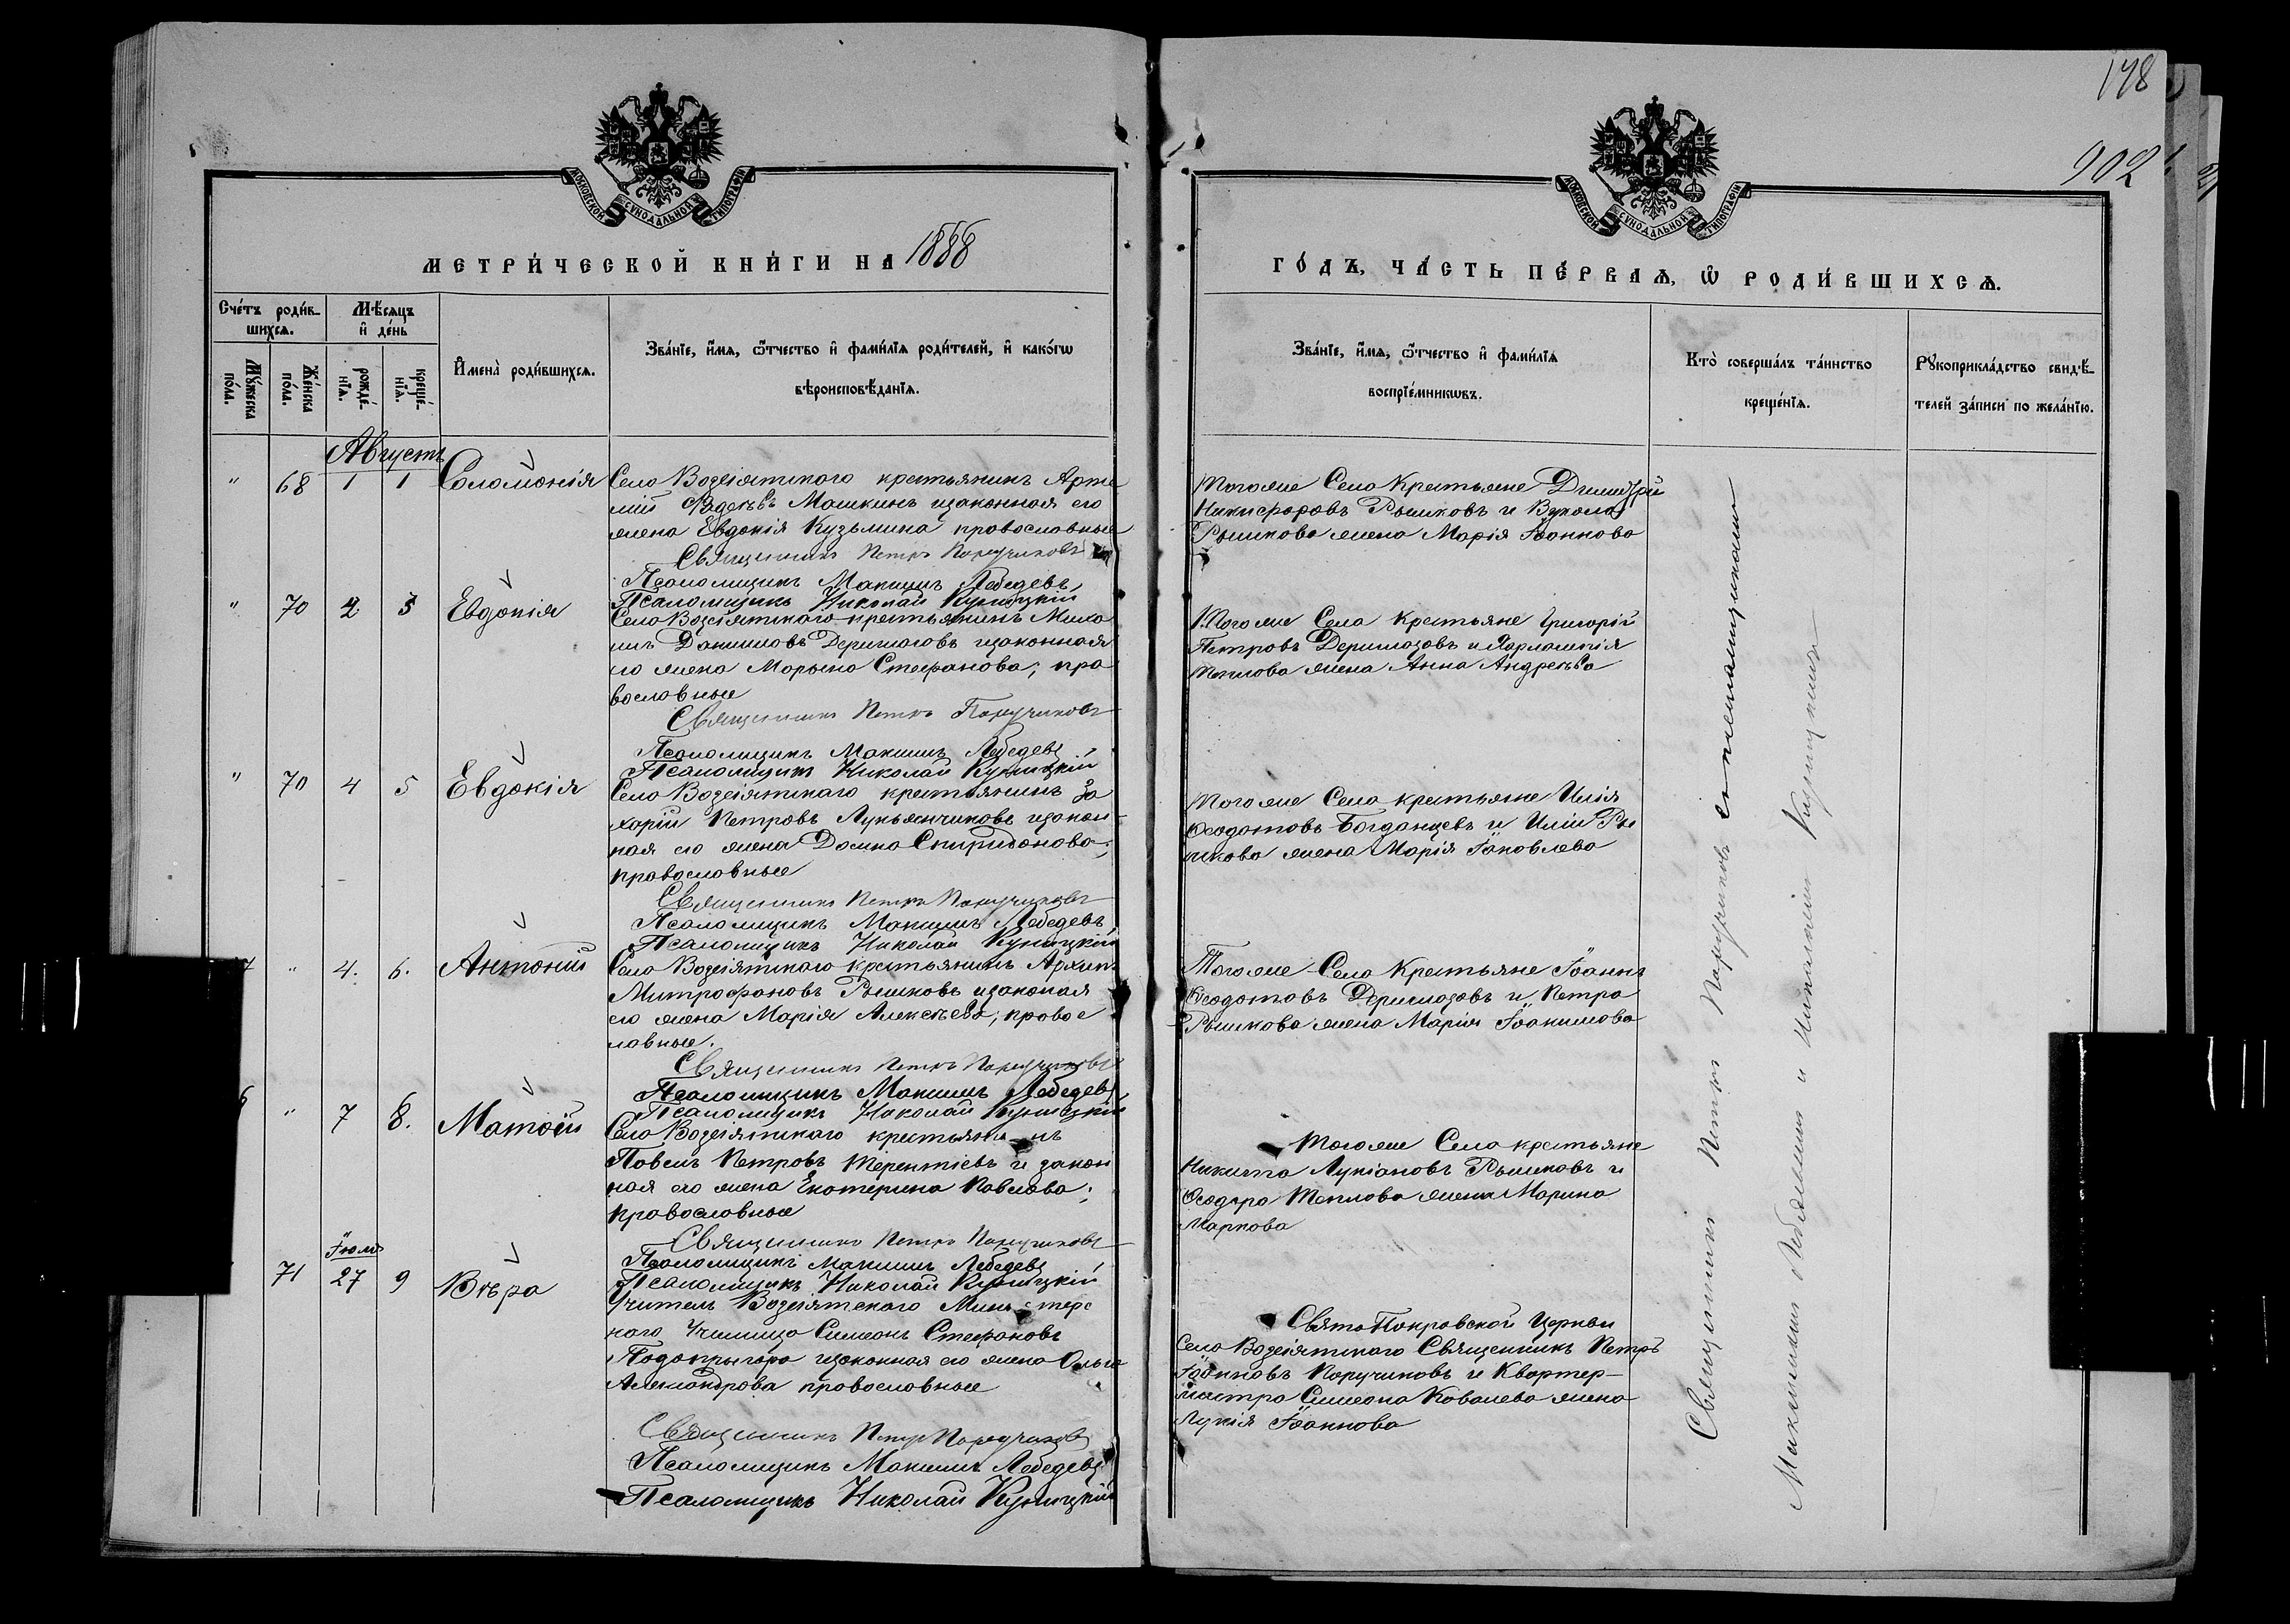 178
902
МОСКОВСКОЙ СУНОДАЛЬНОЙ ТИПОГРАФИ
МОСКОВСКОЙ СУНОДАЛЬНОЙ ТИПОГРАФИ
МЕТРИ́ЧЕСКОЙ КНИ́ГИ НА 1888
ГО́ДЪ, ЧА́СТЬ ПЕ́РВАѦ, Ѽ РОДИ́ВШИХСѦ.
Сче́тъ роди́в-
шихсѧ.
Мѣ́сѧцъ
и҆ де́нь
Мꙋ́жеска
по́ла.
Же́нска
по́ла.
рожде́-
нїѧ.
креще́-
нїѧ.
И҆мена̀ роди́вшихсѧ.
Зва́нїе, и҆́мѧ, ѻ҆́тчество и҆ фами́лїѧ роди́телей, и҆ како́гѡ
вѣроисповѣ́данїѧ.
Зва́нїе, и҆́мѧ, ѻ҆́тчество и҆ фами́лїѧ
воспрїе́мникѡвъ.
Кто̀ соверша́лъ та́инство
креще́нїѧ.
Рꙋкоприкла́дство свидѣ́-
телей за́писи по жела́нїю.
Августъ
" 68 1 1 Соломонія
Село Возсіятскаго крестьянинъ Арте
мій Фадеевъ Машкинъ изаконная его
жена Евдокія Кузьмина православные
Священникъ Петръ Поручиковъ
Псаломщикъ Максимъ Лебедевъ
Псаломщикъ Николай Куницкій
Тогоже Села Крестьяне Димитрій
Никифоровъ Рыжковъ и Вукола
Рыжкова жена Марія Іоаннова
" 70 2 3 Евдокія
Село Возсіятскаго крестьянинъ Миха
илъ Даниловъ Дериглазовъ изаконная
его жена Марьяна Стефанова; пра
вославные
Священникъ Петръ Поручиковъ
Псаломщикъ Максимъ Лебедевъ
Псаломщикъ Николай Куницкій
Тогоже Села Крестьяне Григорій
Петровъ Дериглазовъ и Харлампія
Теплова жена Анна Андреева
" 70 4 5 Евдокія
Село Возсіятскаго крестьянинъ За
харій Петровъ Лукьянчиковъ изакон
ная его жена Домна Спиридонова;
православные
Священникъ Петръ Поручиковъ
Псаломщикъ Максимъ Лебедевъ
Псаломщикъ Николай Куницкій
Тогоже Села крестьяне Илія
Ѳеодотовъ Богданцевъ и Иліи Ры
жкова жена Марія Іаковлева
" 4. 6. Антоній
Село Возсіятскаго крестьянинъ Архипъ
Митрофановъ Рыжковъ изаконая
его жена Марія Алексѣева; правос
лавные.
Священникъ Петръ Поручиковъ
Псаломщикъ Максимъ Лебедевъ
Псаломщикъ Николай Куницкій
Тогоже Села Крестьяне Іоаннъ
Ѳеодотовъ Дериглазовъ и Петра
Рыжкова жена Марія Іоакимова
" 7 8. Матѳій
Село Возсіятскаго крестьянинъ
Павелъ Петровъ Терентіевъ и закон
ная его жена Екатерина Павлова;
православные
Священникъ Петръ Поручиковъ
Псаломщикъ Максимъ Лебедевъ
Псаломщикъ Николай Куницкій
Тогоже Села крестьяне
Никита Лукіановъ Рыжковъ и
Ѳеодора Теплова жена Марина
Маркова
Іюля
71 27 9 Вѣра
Учитель Возсіятскаго Министерс
каго Училища Симеонъ Стефановъ
Подопрыгора изаконная его жена Ольга
Александрова православные
Священникъ Петръ Поручиковъ
Псаломщикъ Максимъ Лебедевъ
Псаломщикъ Николай Куницкій
Свято Покровской Церкви
Села Возсіятскаго Священникъ Петръ
Іоанновъ Поручиковъ и Квартер-
мистра Симеона Ковалева жена
Лукія Іоаннова
Священникъ Петръ Поручиковъ съ псаломщиками
Максимомъ Лебедевымъ и Николаемъ Куницкимъ